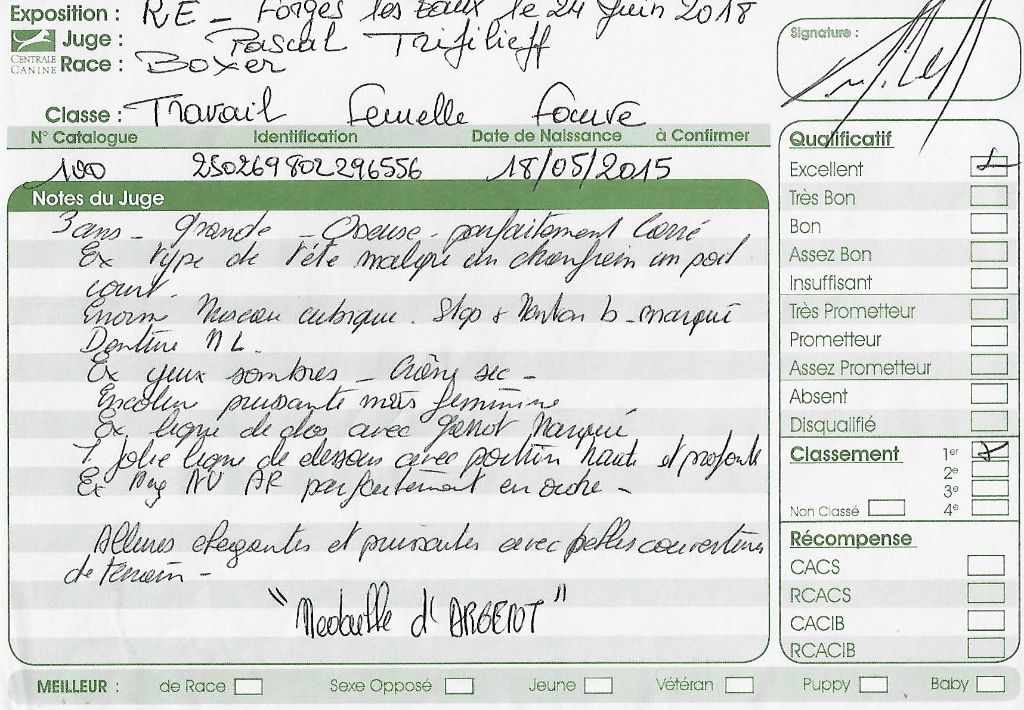 Exposition : RE - Forges les Eaux le 24 Juin 2018
CENTRALE CANINE
Juge : Pascal Trifilieff
Race : Boxer
Classe : Travail Femelle Fauve
N° Catalogue Identification Date de Naissance à Confirmer
100 250269802296556 18/05/2015
Notes du Juge
3 ans - Grande - Osseuse - parfaitement Carré
Ex type de tête malgré un chanfrein un poil
court.
Enorme Museau cubique. Stop & Menton b. marqué
Dentine ML.
Ex yeux sombres - Crâne sec -
Encolure puissante mais féminine
Ex ligne de dos avec garrot Marqué
T jolie ligne de dessous avec poitrine haute et profonde
Ex Ang AV AR parfaitement en ordre -
Allures élegantes et puissantes avec belles couvertures
de terrain -
" d'ARGENT"
Signature :
Qualificatif
Excellent
Très Bon
Bon
Assez Bon
Insuffisant
Très Prometteur
Prometteur
Assez Prometteur
Absent
Disqualifié
Classement 1er
2e
3e
Non Classé 4e
Récompense
CACS
RCACS
CACIB
RCACIB
MEILLEUR : de Race Sexe Opposé Jeune Vétéran Puppy Baby